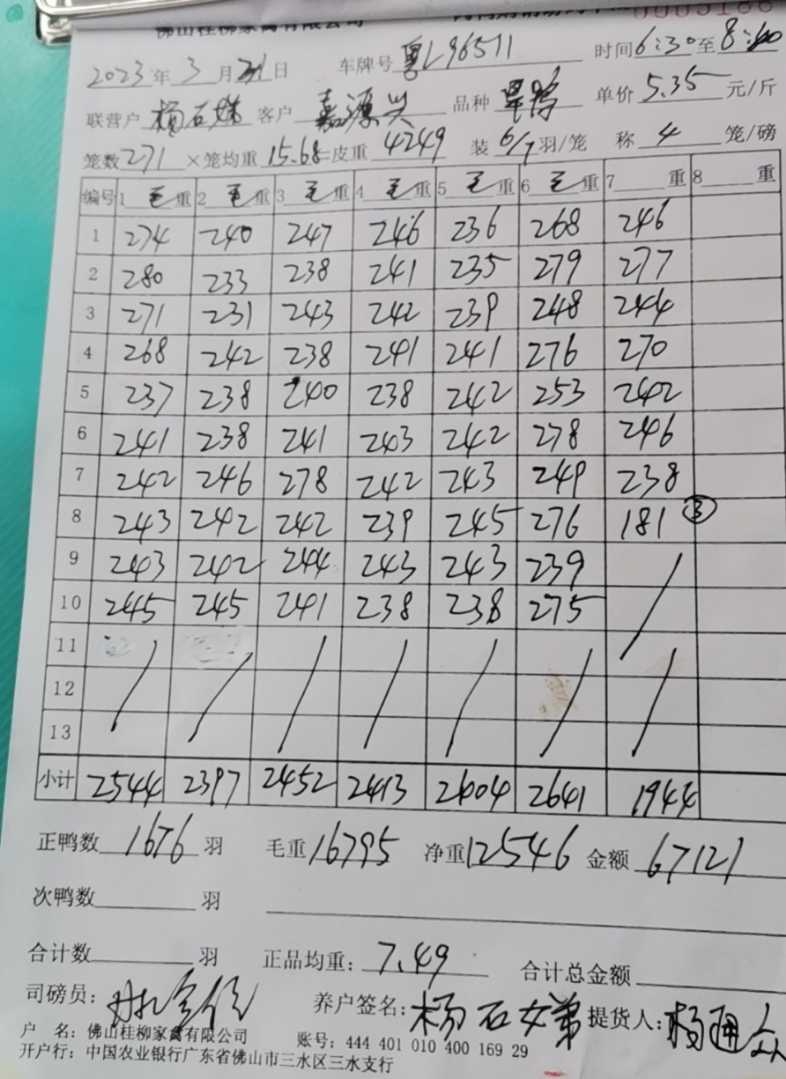 佛山桂柳家禽有限公司
2023年3月21日 车牌号 粤L96511 时间6:30至8:40
联营户 杨石娣 客户 嘉源兴 品种 旱鸭 单价 5.35 元/斤
笼数 271 ×笼均重 15.68=皮重 4249 装 6/7 羽/笼 称 4 笼/磅
编号 1 毛重 2 毛重 3 毛重 4 毛重 5 毛重 6 毛重 7 重 8 重
1 274 240 247 246 236 268 246
2 280 233 238 241 235 279 277
3 271 231 243 242 239 248 244
4 268 242 238 241 241 276 270
5 237 238 240 238 242 253 242
6 241 238 241 243 242 278 246
7 242 246 278 242 243 249 238
8 243 242 242 239 245 276 181 ③
9 243 242 244 243 243 239
10 245 245 241 238 238 275
11
12
13
小计 2544 2397 2452 2413 2404 2641 1944
正鸭数 1676 羽 毛重 16795 净重 12546 金额 67121
次鸭数 羽
合计数 羽 正品均重: 7.49 合计总金额
司磅员: 养户签名: 杨石女弟 提货人:
户 名: 佛山桂柳家禽有限公司 账号: 444 401 010 400 169 29
开户行: 中国农业银行广东省佛山市三水区三水支行